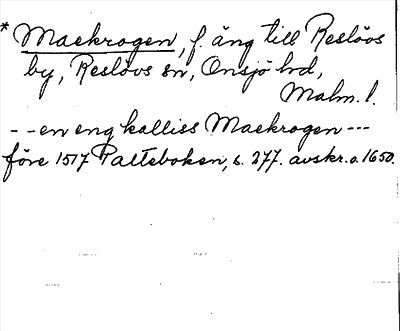 * Maekrogen, f. äng till Reslövs
by, Reslövs sn, Onsjö hd,
Malm. l.
- - en eng kalliss Maekrogen ---
före 1517 Palteboken, s. 277. avskr. o. 1650.